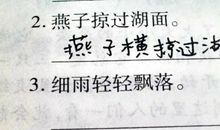 2. 燕子掠过湖面。
燕子横掠过湖
3. 细雨轻轻飘落。